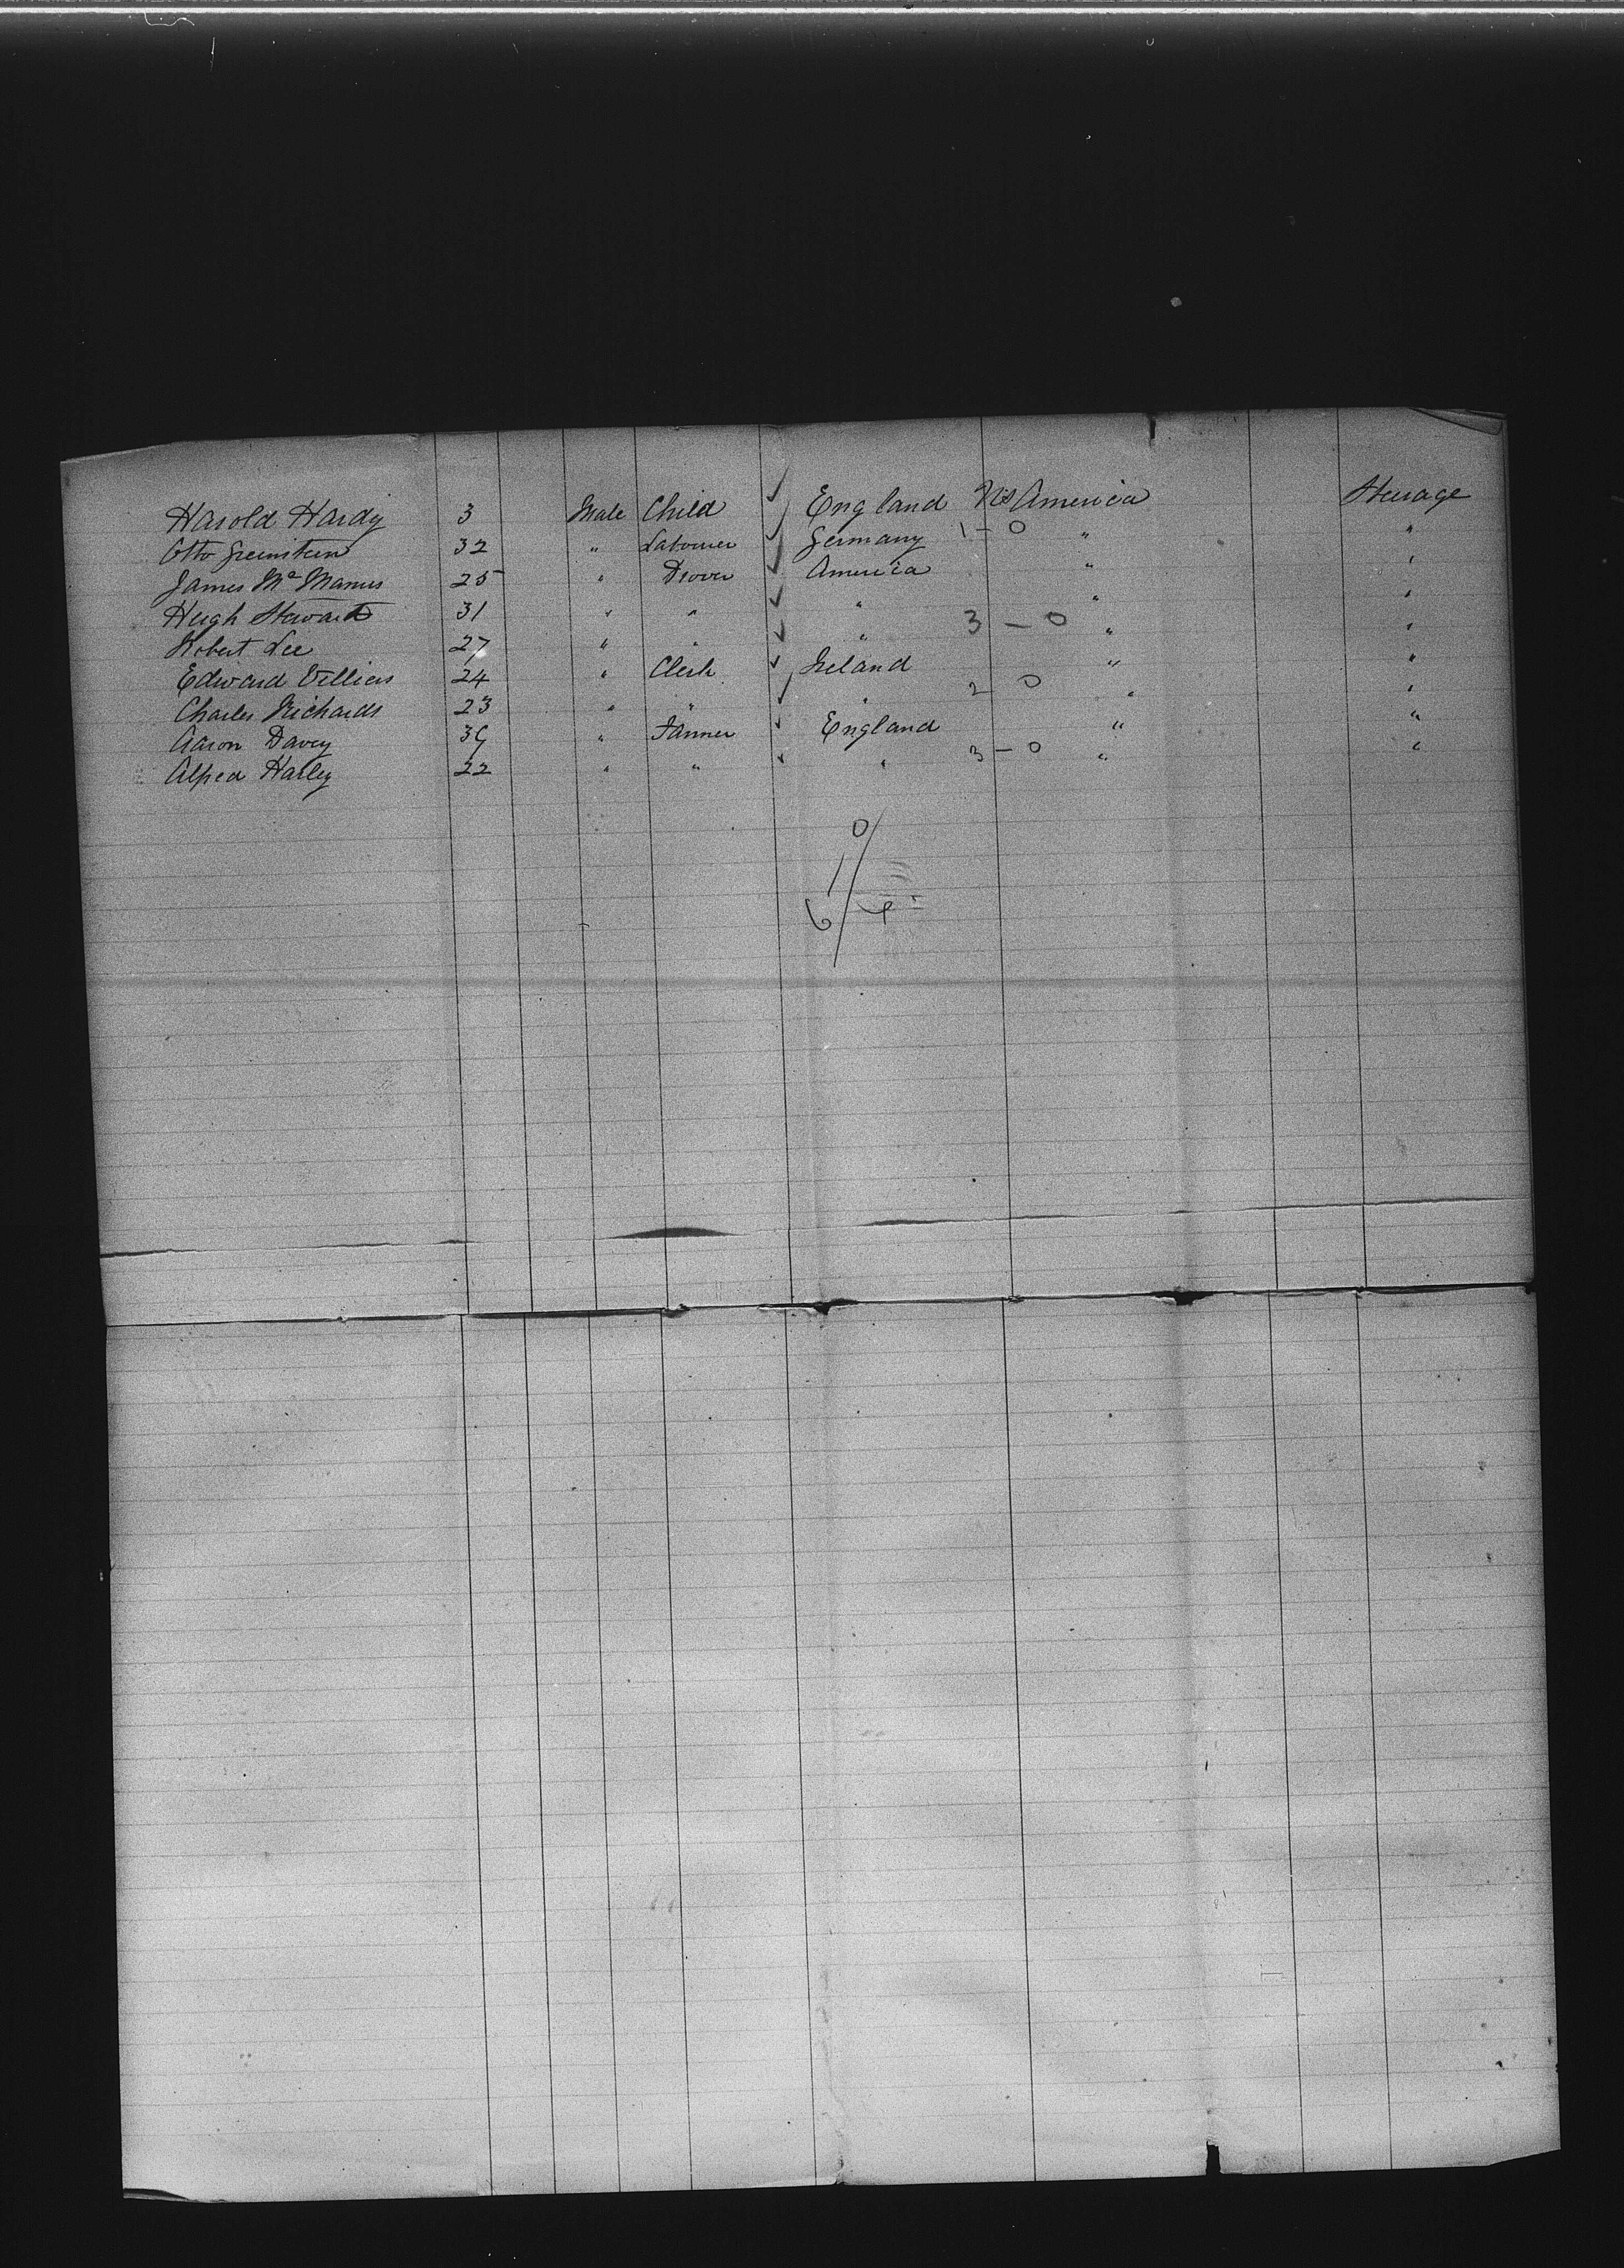 Harold Hardy 3 Male Child ✓ England N.S America Steerage
Otto Greinstein 32 " Labourer ✓ Germany 1 - 0 " "
James Mc Manus 25 " Drover ✓ America " "
Hugh Steward 31 " " ✓ " " "
Robert Lee 27 " " ✓ " 3 - 0 " "
Edward Villiers 24 " Clerk ✓ Ireland " "
Charles Richards 23 " " ✓ " 2 0 " "
Aaron Davey 39 " Tanner ✓ England " "
Alfred Harley 22 " " ✓ " 3 - 0 " "